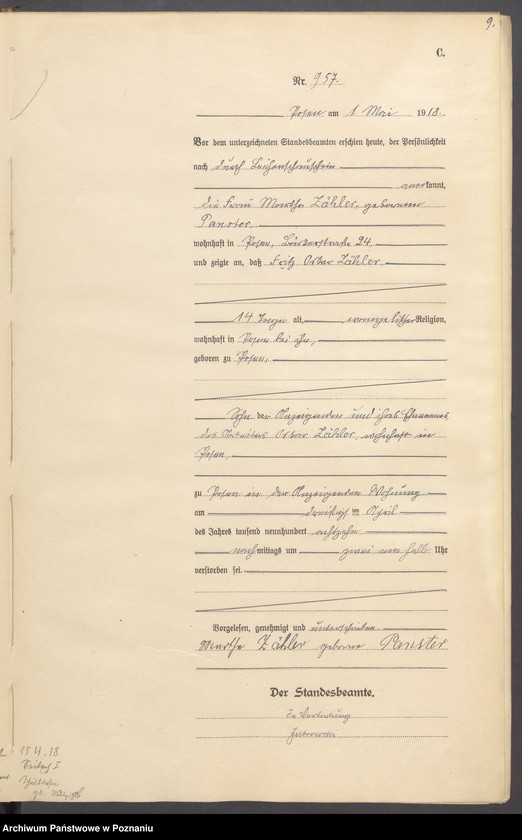 9.
C.
Nr. 957.
Posen am 1 Mai 1918.
Vor dem unterzeichneten Standesbeamten erschien heute, der Persönlichkeit
nach durch Leichenschauschein
anerkannt,
die Frau Martha Zähler, geborene
Panster,
wohnhaft in Posen, 24,
und zeigte an, daß Fritz Oskar Zähler
14 Tage alt, evangelischer Religion,
wohnhaft in Posen bei ihr,
geboren zu Posen,
Sohn der Anzeigenden und ihres Ehemannes
des Arbeiters Oskar Zähler, wohnhaft in
Posen,
zu Posen in der Anzeigenden Wohnung
am dreißigsten April
des Jahres tausend neunhundert achtzehn
nachmittags um zwei ein halb Uhr
verstorben sei.
Vorgelesen, genehmigt und unterschrieben
Martha Zähler geborene Panster
Der Standesbeamte.
In Vertretung
15 4. 18
Archiwum Państwowe w Poznaniu